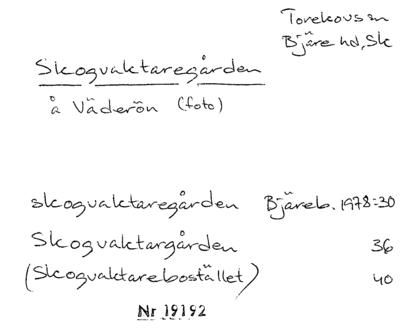 Torekovs sn
Bjäre hd, Sk
Skogvaktaregården
å Väderön (foto)
skogvaktaregården Bjäreb. 1978:30
Skogvaktargården 36
(Skogvaktarebostället) 40
Nr 19192